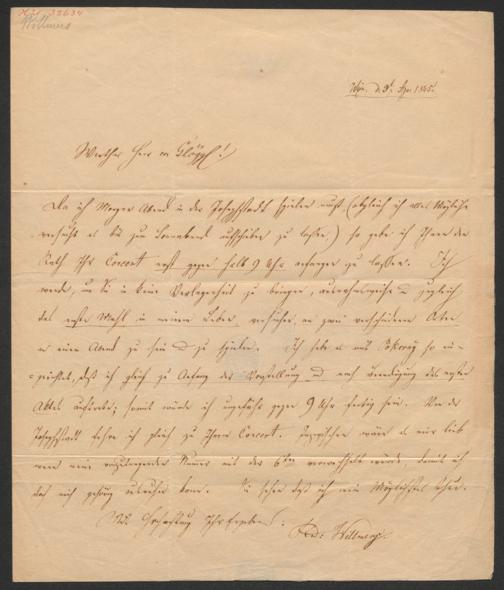 Willmers
Wien, d. 9t. Apr. 1845.
Werther Herr v. Glöggl!
Da ich Morgen Abend in der Josephstadt spielen muß, (obgleich ich alles Mögliche
versucht es bis zum Sonnabend aufschieben zu lassen,) so gebe ich Ihnen den
Rath Ihr Concert erst gegen halb 9 Uhr anfangen zu lassen. Ich
werde, um Sie in keine Verlegenheit zu bringen, zugleich
das erste Mahl in meinem Leben versuchen, an zwei verschiedenen Orten
an einem Abend zu sein und zu spielen. Ich habe es mit Pokorny so ein-
=gerichtet, daß ich gleich zu Anfang der Vorstellung und nach Beendigung des ersten
Aktes auftrete; somit würde ich ungefähr gegen 9 Uhr fertig sein. Von der
Josephstadt fahre ich gleich zu Ihrem Concert. Inzwischen wäre es mir lieb
wenn eine Numer mit der 6ten verwechselt würde, damit ich
das noch gehörig ausruhen kann. Sie sehen daß ich mein Möglichstes thue.
Mit Hochachtung Ihr Ergebener:
Rud: Willmers